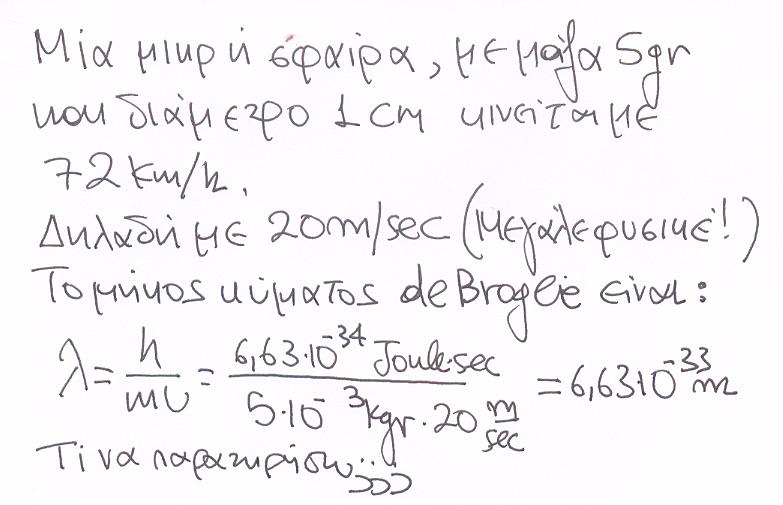 Μία μικρή σφαίρα, με μάζα 5gr
και διάμετρο 1cm κινείται με
72 km/h.
Δηλαδή με 20m/sec (Μεγάλε φυσικέ!)
Το μήκος κύματος de Broglie είναι:
λ = h/mυ = 6,63·10⁻³⁴ Joule·sec / 5·10⁻³ kgr · 20 m/sec = 6,63·10⁻³³ m
Τί να παρατηρήσω;;;